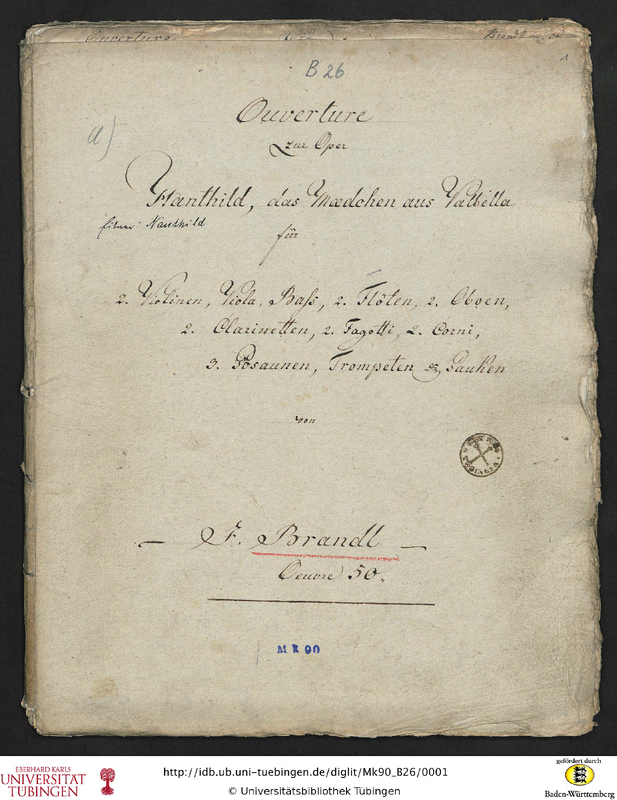 Ouverture Brandl
B 26
1
a)
Ouverture
zur Oper
Hanthild, das Mædchen aus Valbella
Eitner: Nanthild
für
2. Violinen, Viola, Bass, 2. Flöten, 2. Oboen,
2. Clarinetten, 2. Fagotti, 2. Corni,
3. Posaunen, Trompeten & Pauken
von
F. Brandl
Oeuvre 50.
Mk 90
EBERHARD KARLS
UNIVERSITÄT
TÜBINGEN
http://idb.ub.uni-tuebingen.de/diglit/Mk90_B26/0001
© Universitätsbibliothek Tübingen
gefördert durch
Baden-Württemberg